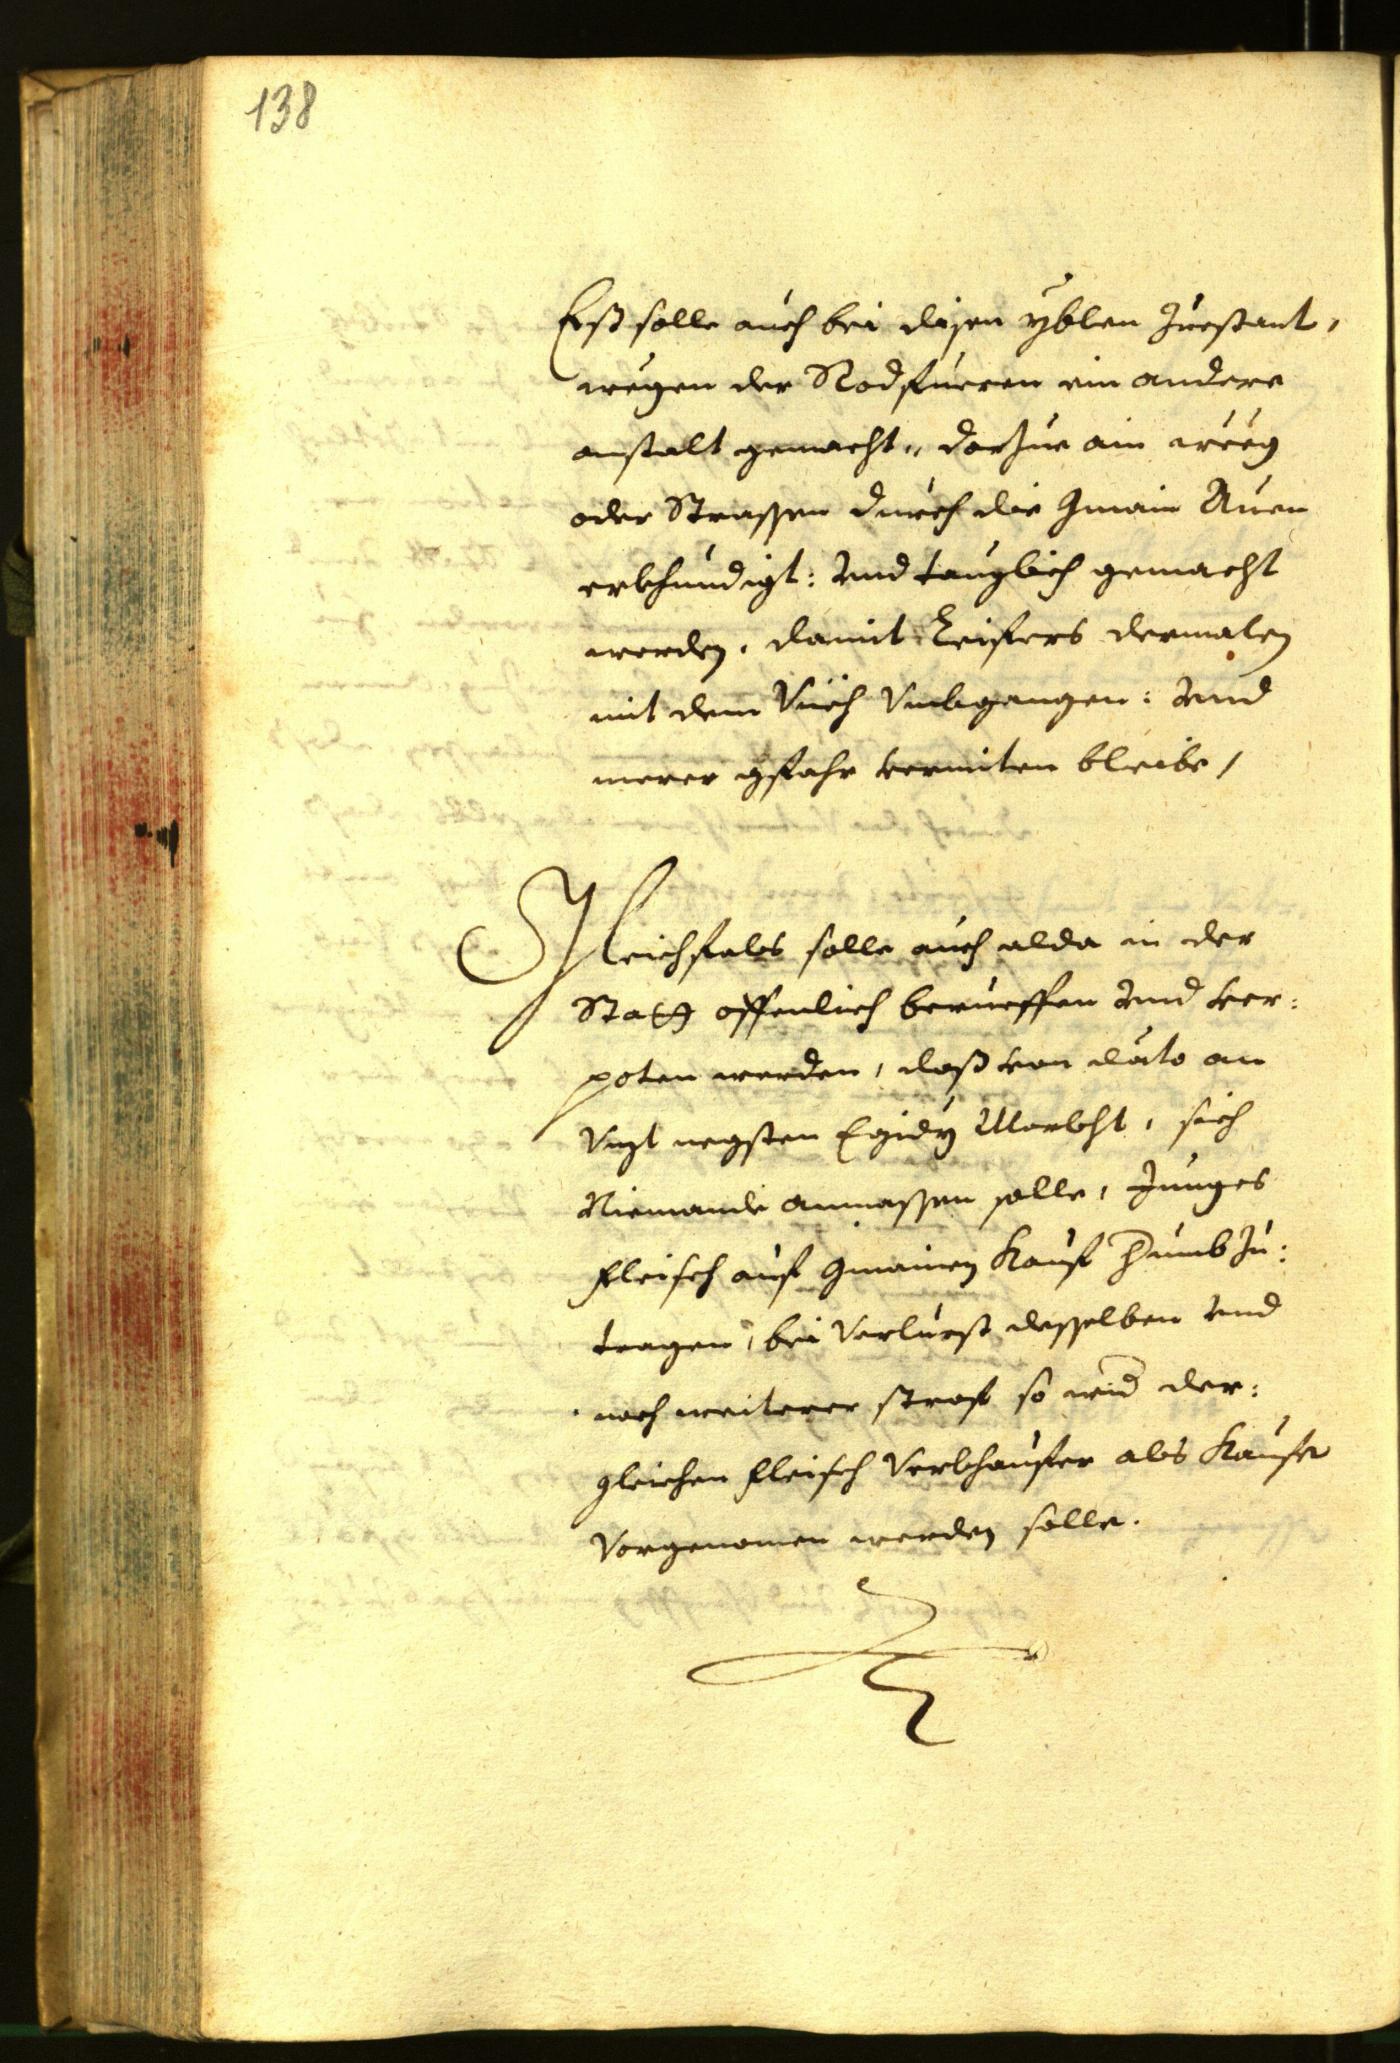 138
Eß solle auch bei disen yblen Zuestant,
wegen der Rodfueren ein andere
anstalt gemacht, darzue ain weeg
oder Strassen durch die Gmain Auen
erkhundigt: und tauglich gemacht
werden, damit Leifers dermalen
mit dem Vüch Umbgangen: und
merer gfahr vermiten bleibe,
Gleichfals solle auch alda in der
Statt offenlich berueffen und ver:
poten werden, daß von dato an
Unzt negsten Egidy Markht, sich
Niemandt anmassen solle, Junges
fleisch auf gmainen Kauf herumb zu:
tragen, bei Verlurst desselben und
noch weiterer straf so wid der:
gleichen fleisch Verkhaufer als Kaufer
Vorgenomen werden solle.